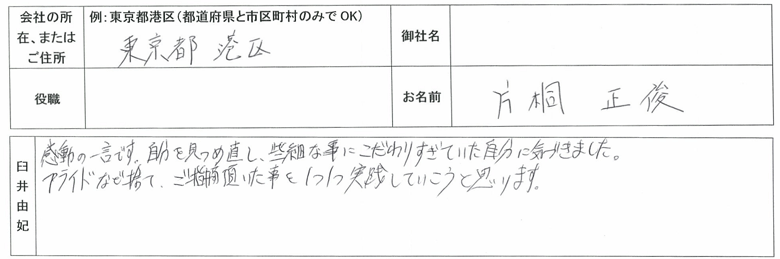 会社の所
在、または
ご住所
例：東京都港区（都道府県と市区町村のみでOK）
東京都 港区
御社名
役職
お名前
片桐 正俊
臼井由妃
感動の一言です。自分を見つめ直し、些細な事にこだわりすぎていた自分に気づきました。
プライドなど捨て、ご指摘頂いた事を1つ1つ実践していこうと思います。